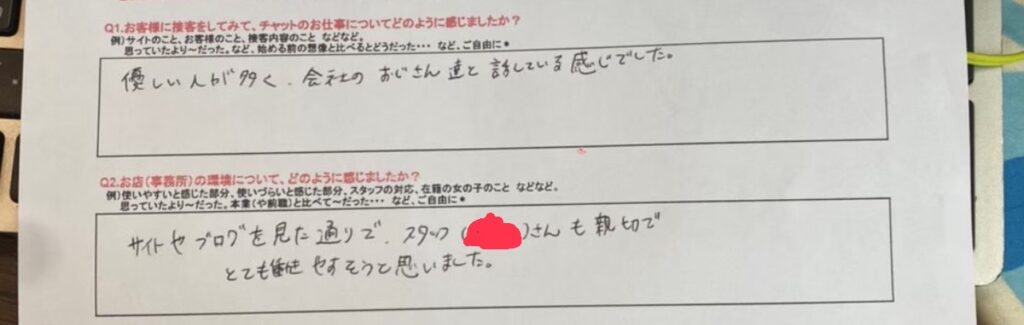 Q1.お客様に接客をしてみて、チャットのお仕事についてどのように感じましたか？
例）サイトのこと、お客様のこと、接客内容のこと などなど。
思っていたより～だった。など、始める前の想像と比べるとどうだった・・・ など、ご自由に★
優しい人が多く、会社のおじさん達と話している感じでした。
Q2.お店（事務所）の環境について、どのように感じましたか？
例）使いやすいと感じた部分、使いづらいと感じた部分、スタッフの対応、在籍の女の子のこと などなど。
思っていたより～だった。本業（や前職）と比べて～だった・・・ など、ご自由に★
サイトやブログを見た通りで、スタッフ（ ）さんも親切で
とても働きやすそうと思いました。